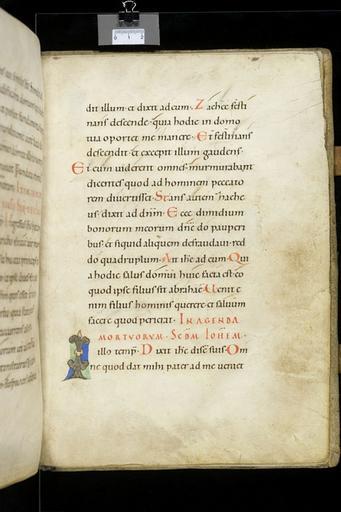 dit illum · et dixit ad eum · Zachee festi
nans descende · quia hodie in domo
tua oportet me manere · Et festinans
descendit · et excepit illum gaudens ·
Et cum uiderent omnes · murmurabant
dicentes quod ad hominem peccato
rem diuertisset · Stans autem zache
us · dixit ad dñm · Ecce dimidium
bonorum meorum dñe do pauperi
bus · et siquid aliquem defraudaui · red
do quadruplum · Ait ihc ad eum · Qui
a hodie salus domui huic facta est · eo
quod ipse filius sit abrahae · Uenit e
nim filius hominis querere · et saluum
facere quod perierat · IN AGENDA
MORTVORVM · SCDM IOHEM ·
I
illo temp̄ · Dixit ihc disc̄ suis · Om
ne quod dat mihi pater · ad me ueniet